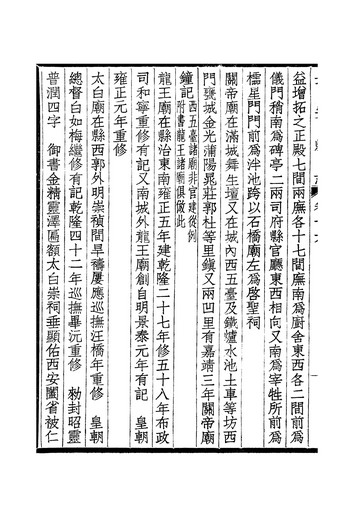 益增拓之正殿七間兩廡各十七間廡南爲廚舍東西各二間前爲
儀門稍南爲碑亭二兩司府縣官廳東西相向又南爲宰牲所前爲
櫺星門門前爲泮池跨以石橋廟左爲啓聖祠
關帝廟在滿城舞生壇又在城內西五臺及鐵爐水池土車等坊西
門甕城金光蒲陽晁莊郭杜等里鎭又兩凹里有嘉靖三年關帝廟
鐘記西五臺諸廟非官建從例附書龍王諸廟俱倣此
龍王廟在縣治東南雍正五年建乾隆二十七年修五十八年布政
司和寧重修有記又南城外龍王廟創自明景泰元年有記 皇朝
雍正元年重修
太白廟在縣西郭外明崇禎間旱禱屢應巡撫汪橋年重修 皇朝
總督白如梅繼修有記乾隆四十二年巡撫畢沅重修 勅封昭靈
普潤四字 御書金精靈澤匾額太白崇祠垂顯佑西安闔省被仁